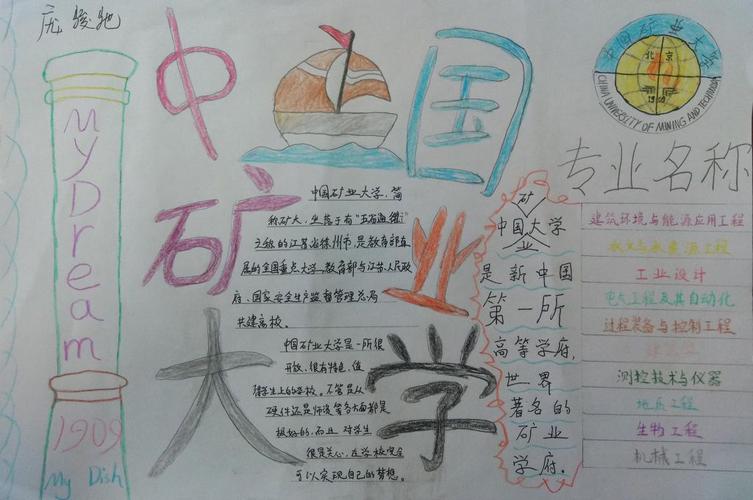 庞骏驰
My Dream
1909
My Dish
中国
矿业
大学
中国矿业大学
北京
1909
CHINA UNIVERSITY OF MINING AND TECHNOLOGY
中国矿业大学,简
称矿大,坐落于有"五省通衢"
之称的江苏省徐州市,是教育部直
属的全国重点大学,教育部与江苏人民政
府、国家安全生产监督管理总局
共建高校。
中国矿业大学是一所很
开放、很有特色、值
得学生上的学校。不管是从
硬件还是师资等各方面都是
挺好的,而且对学生
很关心,在学校完全
可以实现自己的梦想。
中国矿业大学
是新中国
第一所
高等学府,
世界
著名的
矿业
学府.
专业名称
建筑环境与能源应用工程
工业设计
电气工程及其自动化
过程装备与控制工程
测控技术与仪器
地质工程
生物工程
机械工程